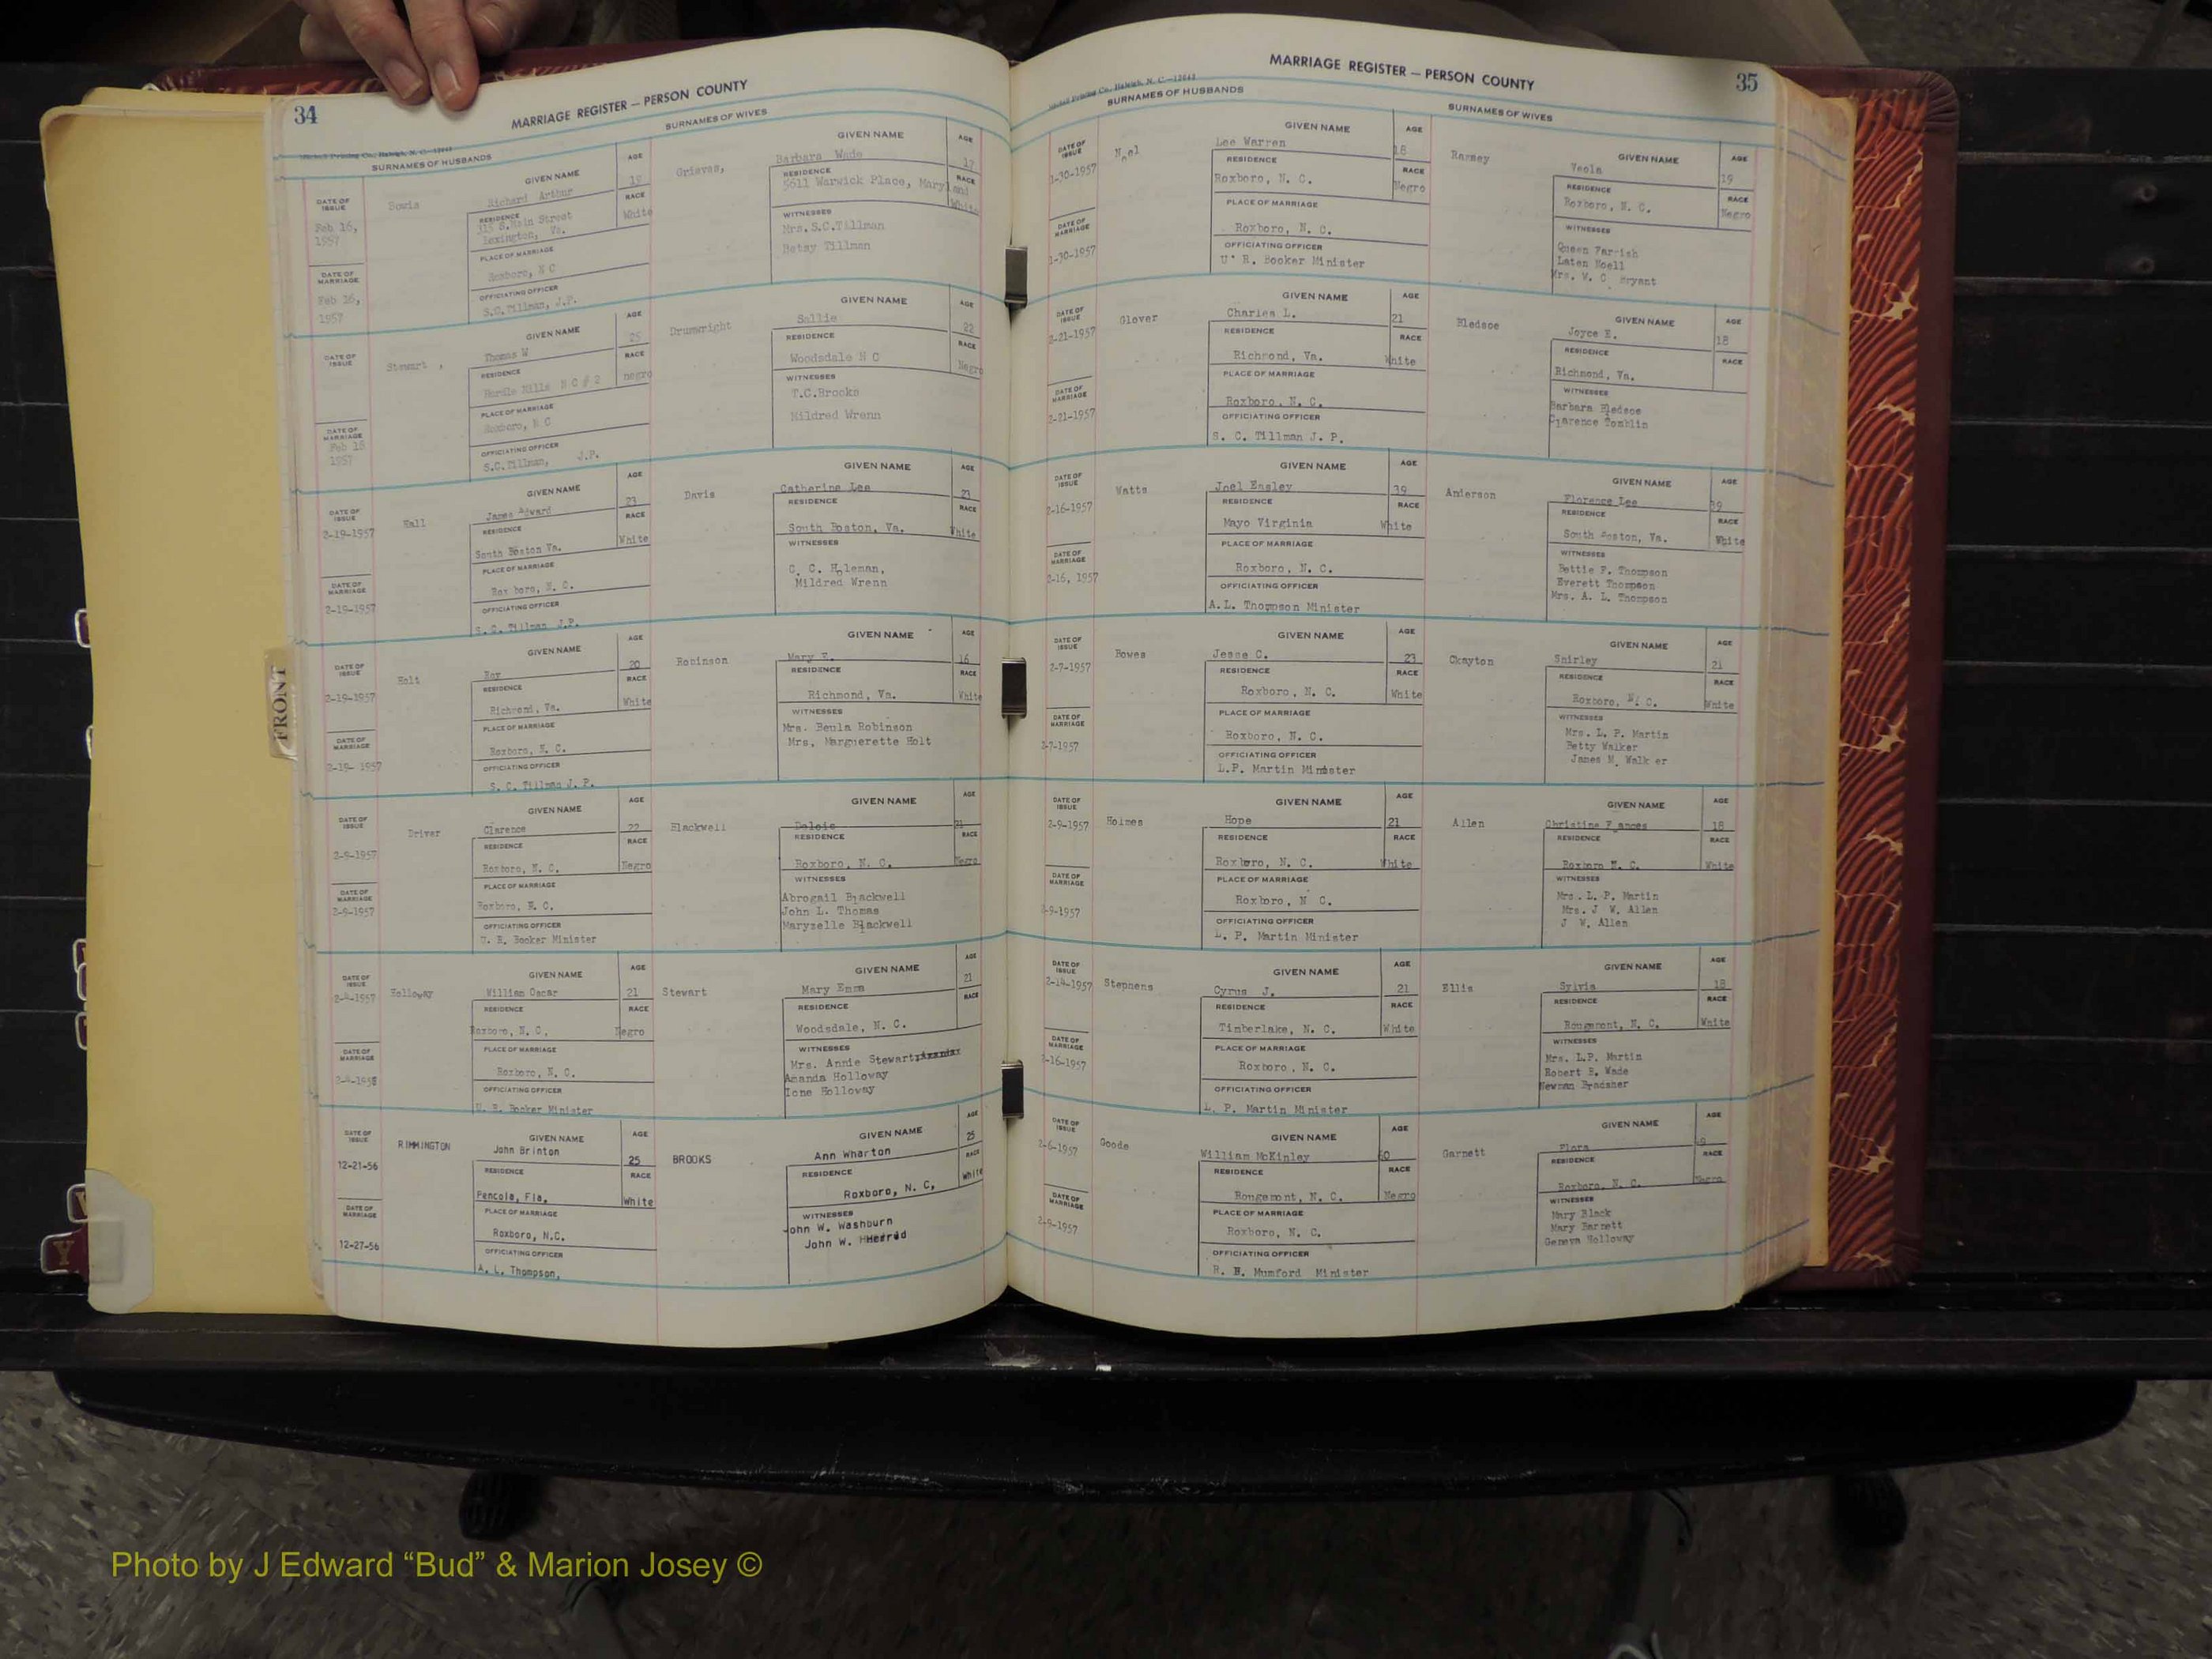 34
MARRIAGE REGISTER — PERSON COUNTY
SURNAMES OF HUSBANDS
SURNAMES OF WIVES
DATE OF ISSUE
Feb 16, 1957
DATE OF MARRIAGE
Feb 16, 1957
GIVEN NAME
Richard Arthur
AGE
19
RESIDENCE
315 S.Main Street
Lexington, Va.
RACE
White
PLACE OF MARRIAGE
Roxboro, N C
OFFICIATING OFFICER
S.C.Tillman, J.P.
Grieves,
GIVEN NAME
Barbara Wade
AGE
17
RESIDENCE
5611 Warwick Place, Maryland
RACE
White
WITNESSES
Mrs.S.C.Tillman
Betsy Tillman
DATE OF ISSUE
DATE OF MARRIAGE
Feb 16
1957
Stewart ,
GIVEN NAME
Thomas W
AGE
25
RESIDENCE
Hurdle Mills N C # 2
RACE
negro
PLACE OF MARRIAGE
Roxboro, N C
OFFICIATING OFFICER
S.C.Tillman, J.P.
Drumwright
GIVEN NAME
Sallie
AGE
22
RESIDENCE
Woodsdale N C
RACE
Negro
WITNESSES
T.C.Brooks
Mildred Wrenn
DATE OF ISSUE
2-19-1957
DATE OF MARRIAGE
2-19-1957
Hall
GIVEN NAME
James Edward
AGE
23
RESIDENCE
South Boston Va.
RACE
White
PLACE OF MARRIAGE
Rox boro, N. C.
OFFICIATING OFFICER
S. C. Tillman J.P.
Davis
GIVEN NAME
Catherine Lee
AGE
23
RESIDENCE
South Boston, Va.
RACE
White
WITNESSES
C. C. Holeman,
Mildred Wrenn
DATE OF ISSUE
2-19-1957
DATE OF MARRIAGE
2-19- 1957
Holt
GIVEN NAME
Roy
AGE
20
RESIDENCE
Richmond, Va.
RACE
White
PLACE OF MARRIAGE
Roxboro, N. C.
OFFICIATING OFFICER
S. C. Tillman J. P.
Robinson
GIVEN NAME
Mary E.
AGE
16
RESIDENCE
Richmond, Va.
RACE
White
WITNESSES
Mrs. Beula Robinson
Mrs. Marguerette Holt
DATE OF ISSUE
2-9-1957
DATE OF MARRIAGE
2-9-1957
Driver
GIVEN NAME
Clarence
AGE
22
RESIDENCE
Roxboro, N. C.
RACE
Negro
PLACE OF MARRIAGE
Roxboro, N. C.
OFFICIATING OFFICER
U. R. Booker Minister
Blackwell
GIVEN NAME
Delois
AGE
21
RESIDENCE
Roxboro, N. C.
RACE
Negro
WITNESSES
Abrogail Blackwell
John L. Thomas
Maryzelle Blackwell
DATE OF ISSUE
2-4-1957
DATE OF MARRIAGE
2-4-1958
Holloway
GIVEN NAME
William Oscar
AGE
21
RESIDENCE
Roxboro, N. C.
RACE
Negro
PLACE OF MARRIAGE
Roxboro, N. C.
OFFICIATING OFFICER
U. R. Booker Minister
Stewart
GIVEN NAME
Mary Emma
AGE
21
RESIDENCE
Woodsdale, N. C.
RACE
WITNESSES
Mrs. Annie Stewart
Amanda Holloway
Ione Holloway
DATE OF ISSUE
12-21-56
DATE OF MARRIAGE
12-27-56
RIMMINGTON
GIVEN NAME
John Brinton
AGE
25
RESIDENCE
Pencola, Fla,
RACE
White
PLACE OF MARRIAGE
Roxboro, N.C.
OFFICIATING OFFICER
A. L. Thompson,
BROOKS
GIVEN NAME
Ann Wharton
AGE
25
RESIDENCE
Roxboro, N. C,
RACE
White
WITNESSES
John W. Washburn
John W.
FRONT
Y
35
MARRIAGE REGISTER — PERSON COUNTY
SURNAMES OF HUSBANDS
SURNAMES OF WIVES
DATE OF ISSUE
1-30-1957
DATE OF MARRIAGE
1-30-1957
Noel
GIVEN NAME
Lee Warren
AGE
18
RESIDENCE
Roxboro, N. C.
RACE
Negro
PLACE OF MARRIAGE
Roxboro, N. C.
OFFICIATING OFFICER
U. R. Booker Minister
Ramsey
GIVEN NAME
Veola
AGE
19
RESIDENCE
Roxboro, N. C.
RACE
Negro
WITNESSES
Queen Parrish
Laten Noell
Mrs. W. C. Bryant
DATE OF ISSUE
2-21-1957
DATE OF MARRIAGE
2-21-1957
Glover
GIVEN NAME
Charles L.
AGE
21
RESIDENCE
Richmond, Va.
RACE
White
PLACE OF MARRIAGE
Roxboro, N. C.
OFFICIATING OFFICER
S. C. Tillman J. P.
Bledsoe
GIVEN NAME
Joyce E.
AGE
18
RESIDENCE
Richmond, Va.
RACE
WITNESSES
Barbara Bledsoe
Clarence Tomblin
DATE OF ISSUE
2-16-1957
DATE OF MARRIAGE
2-16, 1957
Watts
GIVEN NAME
Joel Ensley
AGE
39
RESIDENCE
Mayo Virginia
RACE
White
PLACE OF MARRIAGE
Roxboro, N. C.
OFFICIATING OFFICER
A.L. Thompson Minister
Anderson
GIVEN NAME
Florence Lee
AGE
39
RESIDENCE
South Boston, Va.
RACE
White
WITNESSES
Bettie F. Thompson
Everett Thompson
Mrs. A. L. Thompson
DATE OF ISSUE
2-7-1957
DATE OF MARRIAGE
2-7-1957
Bowes
GIVEN NAME
Jesse C.
AGE
23
RESIDENCE
Roxboro, N. C.
RACE
White
PLACE OF MARRIAGE
Roxboro, N. C.
OFFICIATING OFFICER
L.P. Martin Minister
Ckayton
GIVEN NAME
Shirley
AGE
21
RESIDENCE
Roxboro, N. C.
RACE
White
WITNESSES
Mrs. L. P. Martin
Betty Walker
James M. Walk er
DATE OF ISSUE
2-9-1957
DATE OF MARRIAGE
2-9-1957
Holmes
GIVEN NAME
Hope
AGE
21
RESIDENCE
Roxboro, N. C.
RACE
White
PLACE OF MARRIAGE
Roxboro, N C.
OFFICIATING OFFICER
L. P. Martin Minister
Allen
GIVEN NAME
Christine Frances
AGE
18
RESIDENCE
Roxboro N. C.
RACE
White
WITNESSES
Mrs. L. P. Martin
Mrs. J W. Allen
J W. Allen
DATE OF ISSUE
2-14-1957
DATE OF MARRIAGE
2-16-1957
Stephens
GIVEN NAME
Cyrus J.
AGE
21
RESIDENCE
Timberlake, N. C.
RACE
White
PLACE OF MARRIAGE
Roxboro, N. C.
OFFICIATING OFFICER
L. P. Martin Minister
Ellis
GIVEN NAME
Sylvia
AGE
18
RESIDENCE
Rougemont, N. C.
RACE
White
WITNESSES
Mrs. L.P. Martin
Robert B. Wade
Newman Bradsher
DATE OF ISSUE
2-6-1957
DATE OF MARRIAGE
2-9-1957
Goode
GIVEN NAME
William McKinley
AGE
RESIDENCE
Rougemont, N. C.
RACE
Negro
PLACE OF MARRIAGE
Roxboro, N. C.
OFFICIATING OFFICER
R. H. Mumford Minister
Garnett
GIVEN NAME
Flora
AGE
RESIDENCE
Roxboro, N. C.
RACE
Negro
WITNESSES
Mary Black
Mary Barnett
Geneva Holloway
Photo by J Edward “Bud” & Marion Josey ©